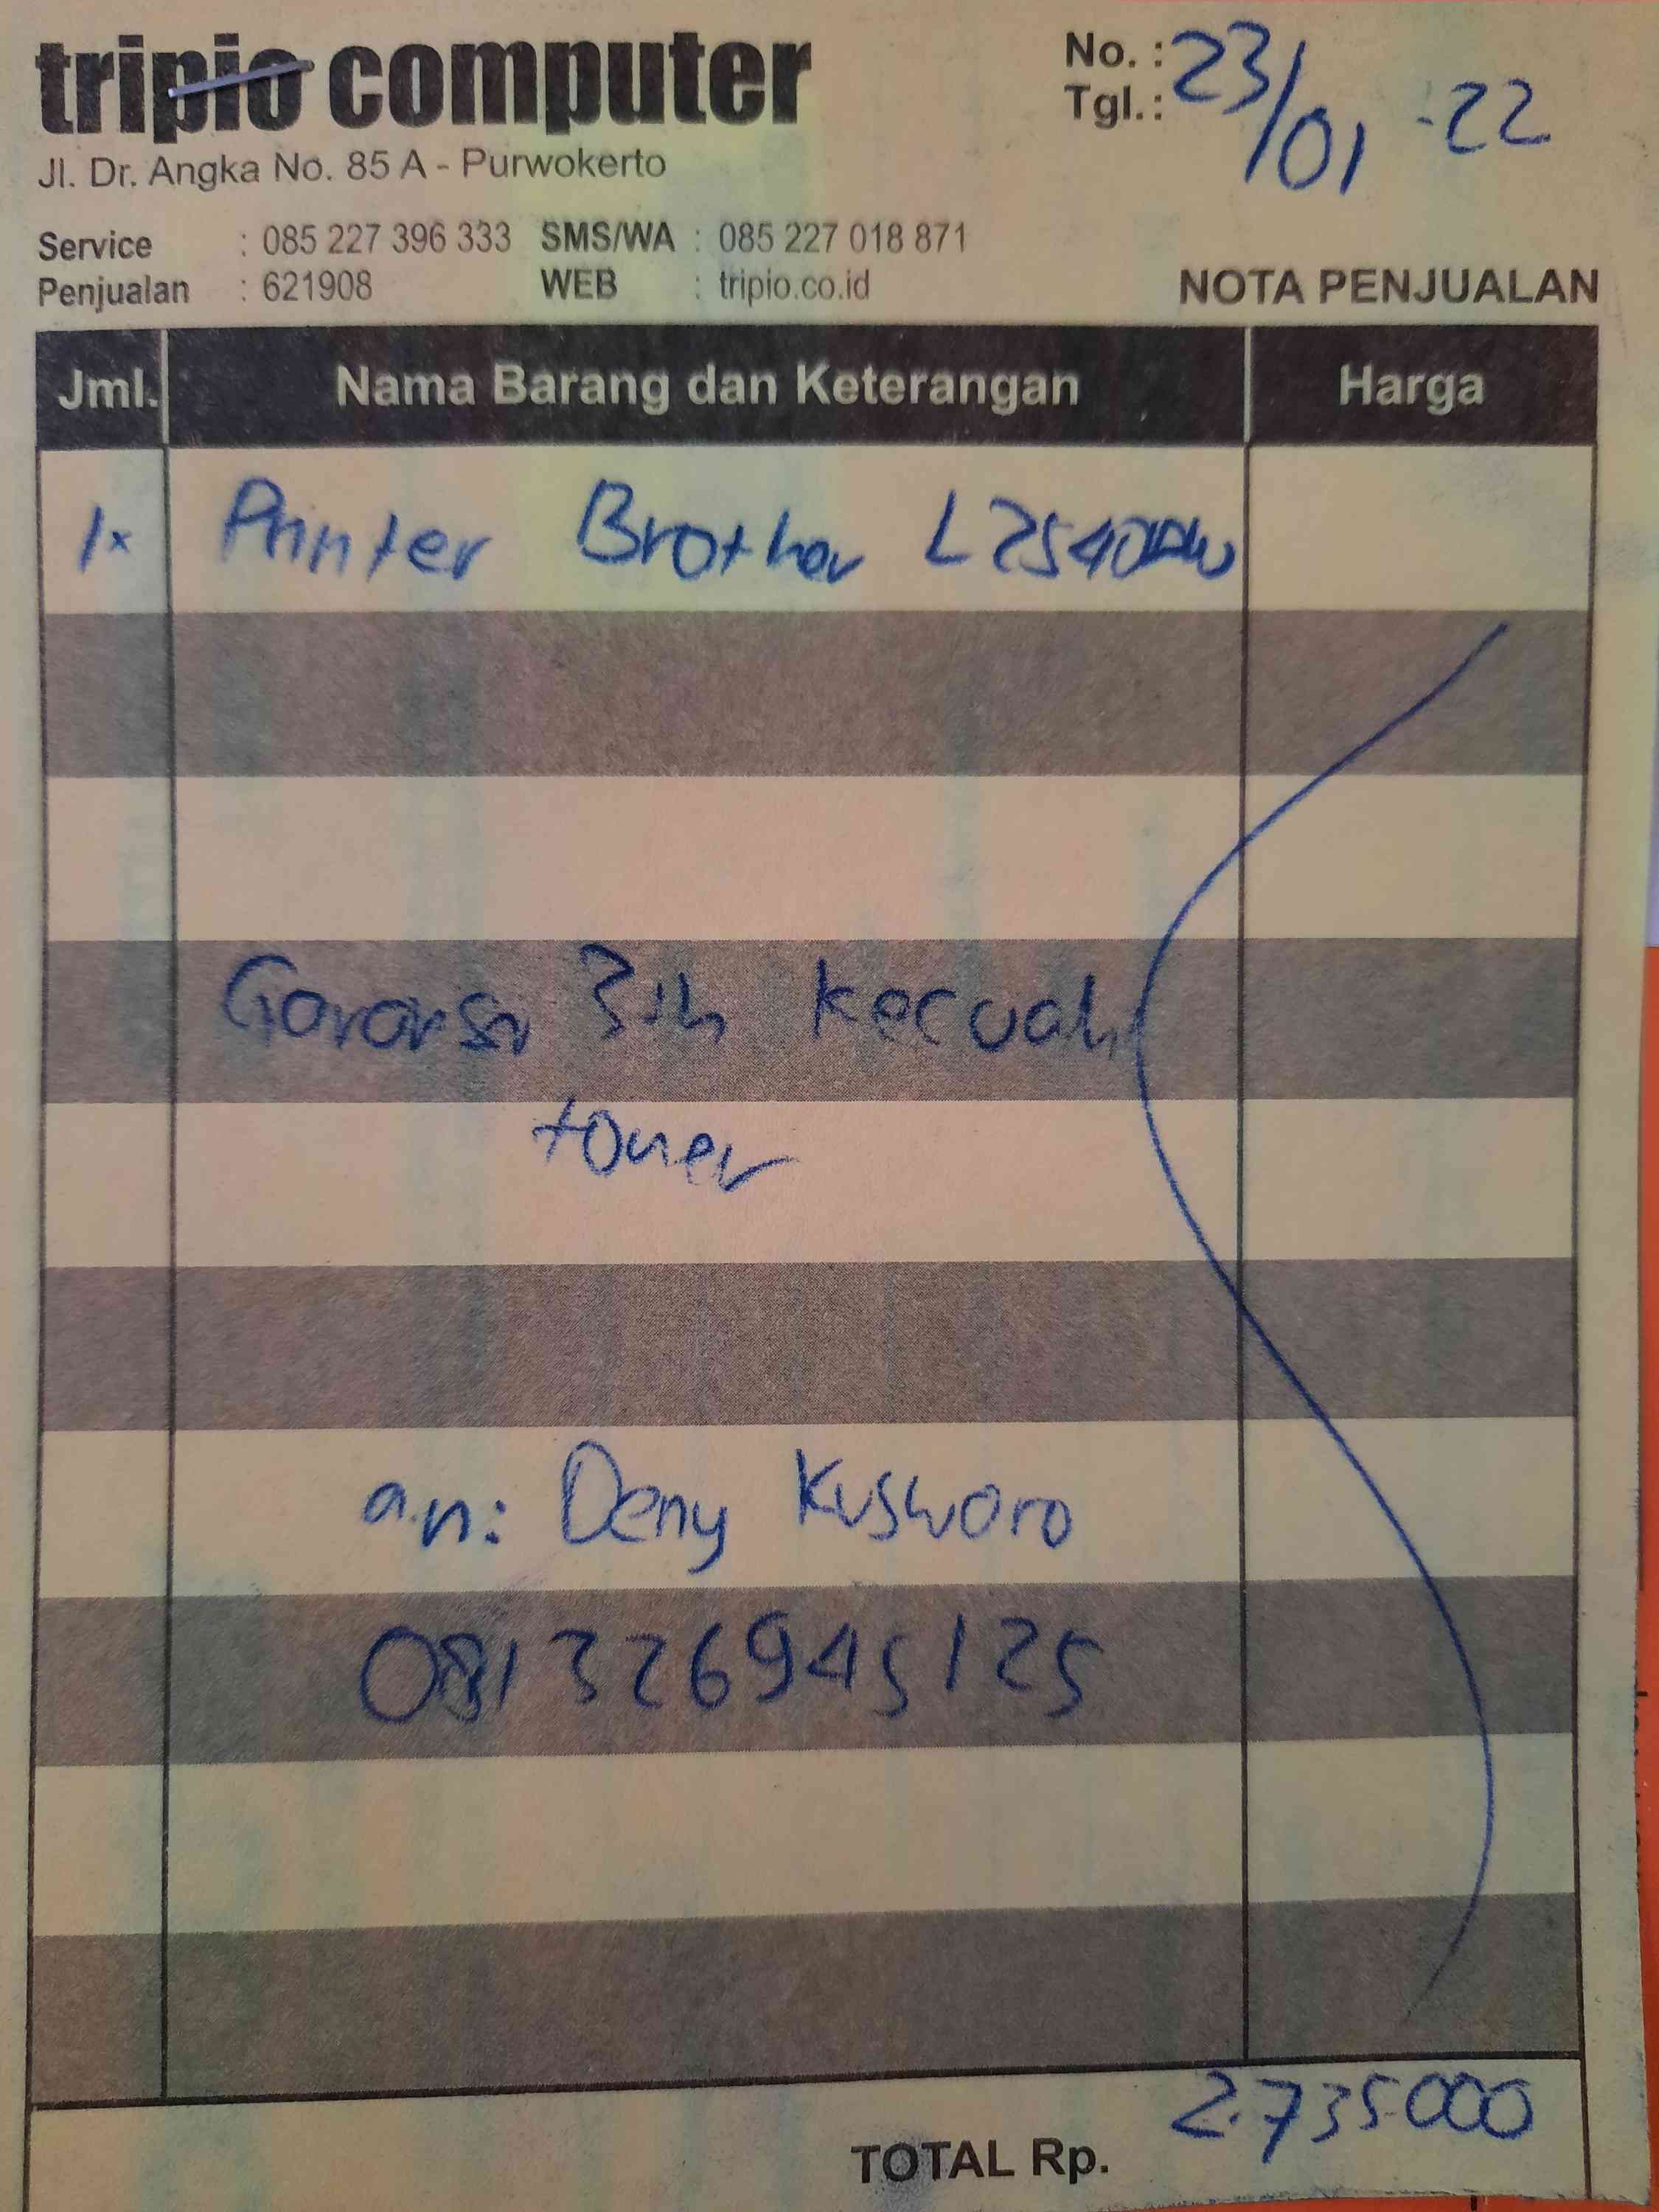 tripio computer
No. :
Tgl. : 23/01 -22
Jl. Dr. Angka No. 85 A - Purwokerto
Service : 085 227 396 333 SMS/WA : 085 227 018 871
Penjualan : 621908 WEB : tripio.co.id
NOTA PENJUALAN
Jml. Nama Barang dan Keterangan Harga
1x Printer Brother L2540DW
Garansi 3th kecuali
toner
a.n: Deny Kusworo
081326945125
2.735.000
TOTAL Rp.